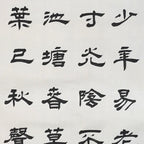 少年易老
寸光陰不
池塘春草
葉已秋聲